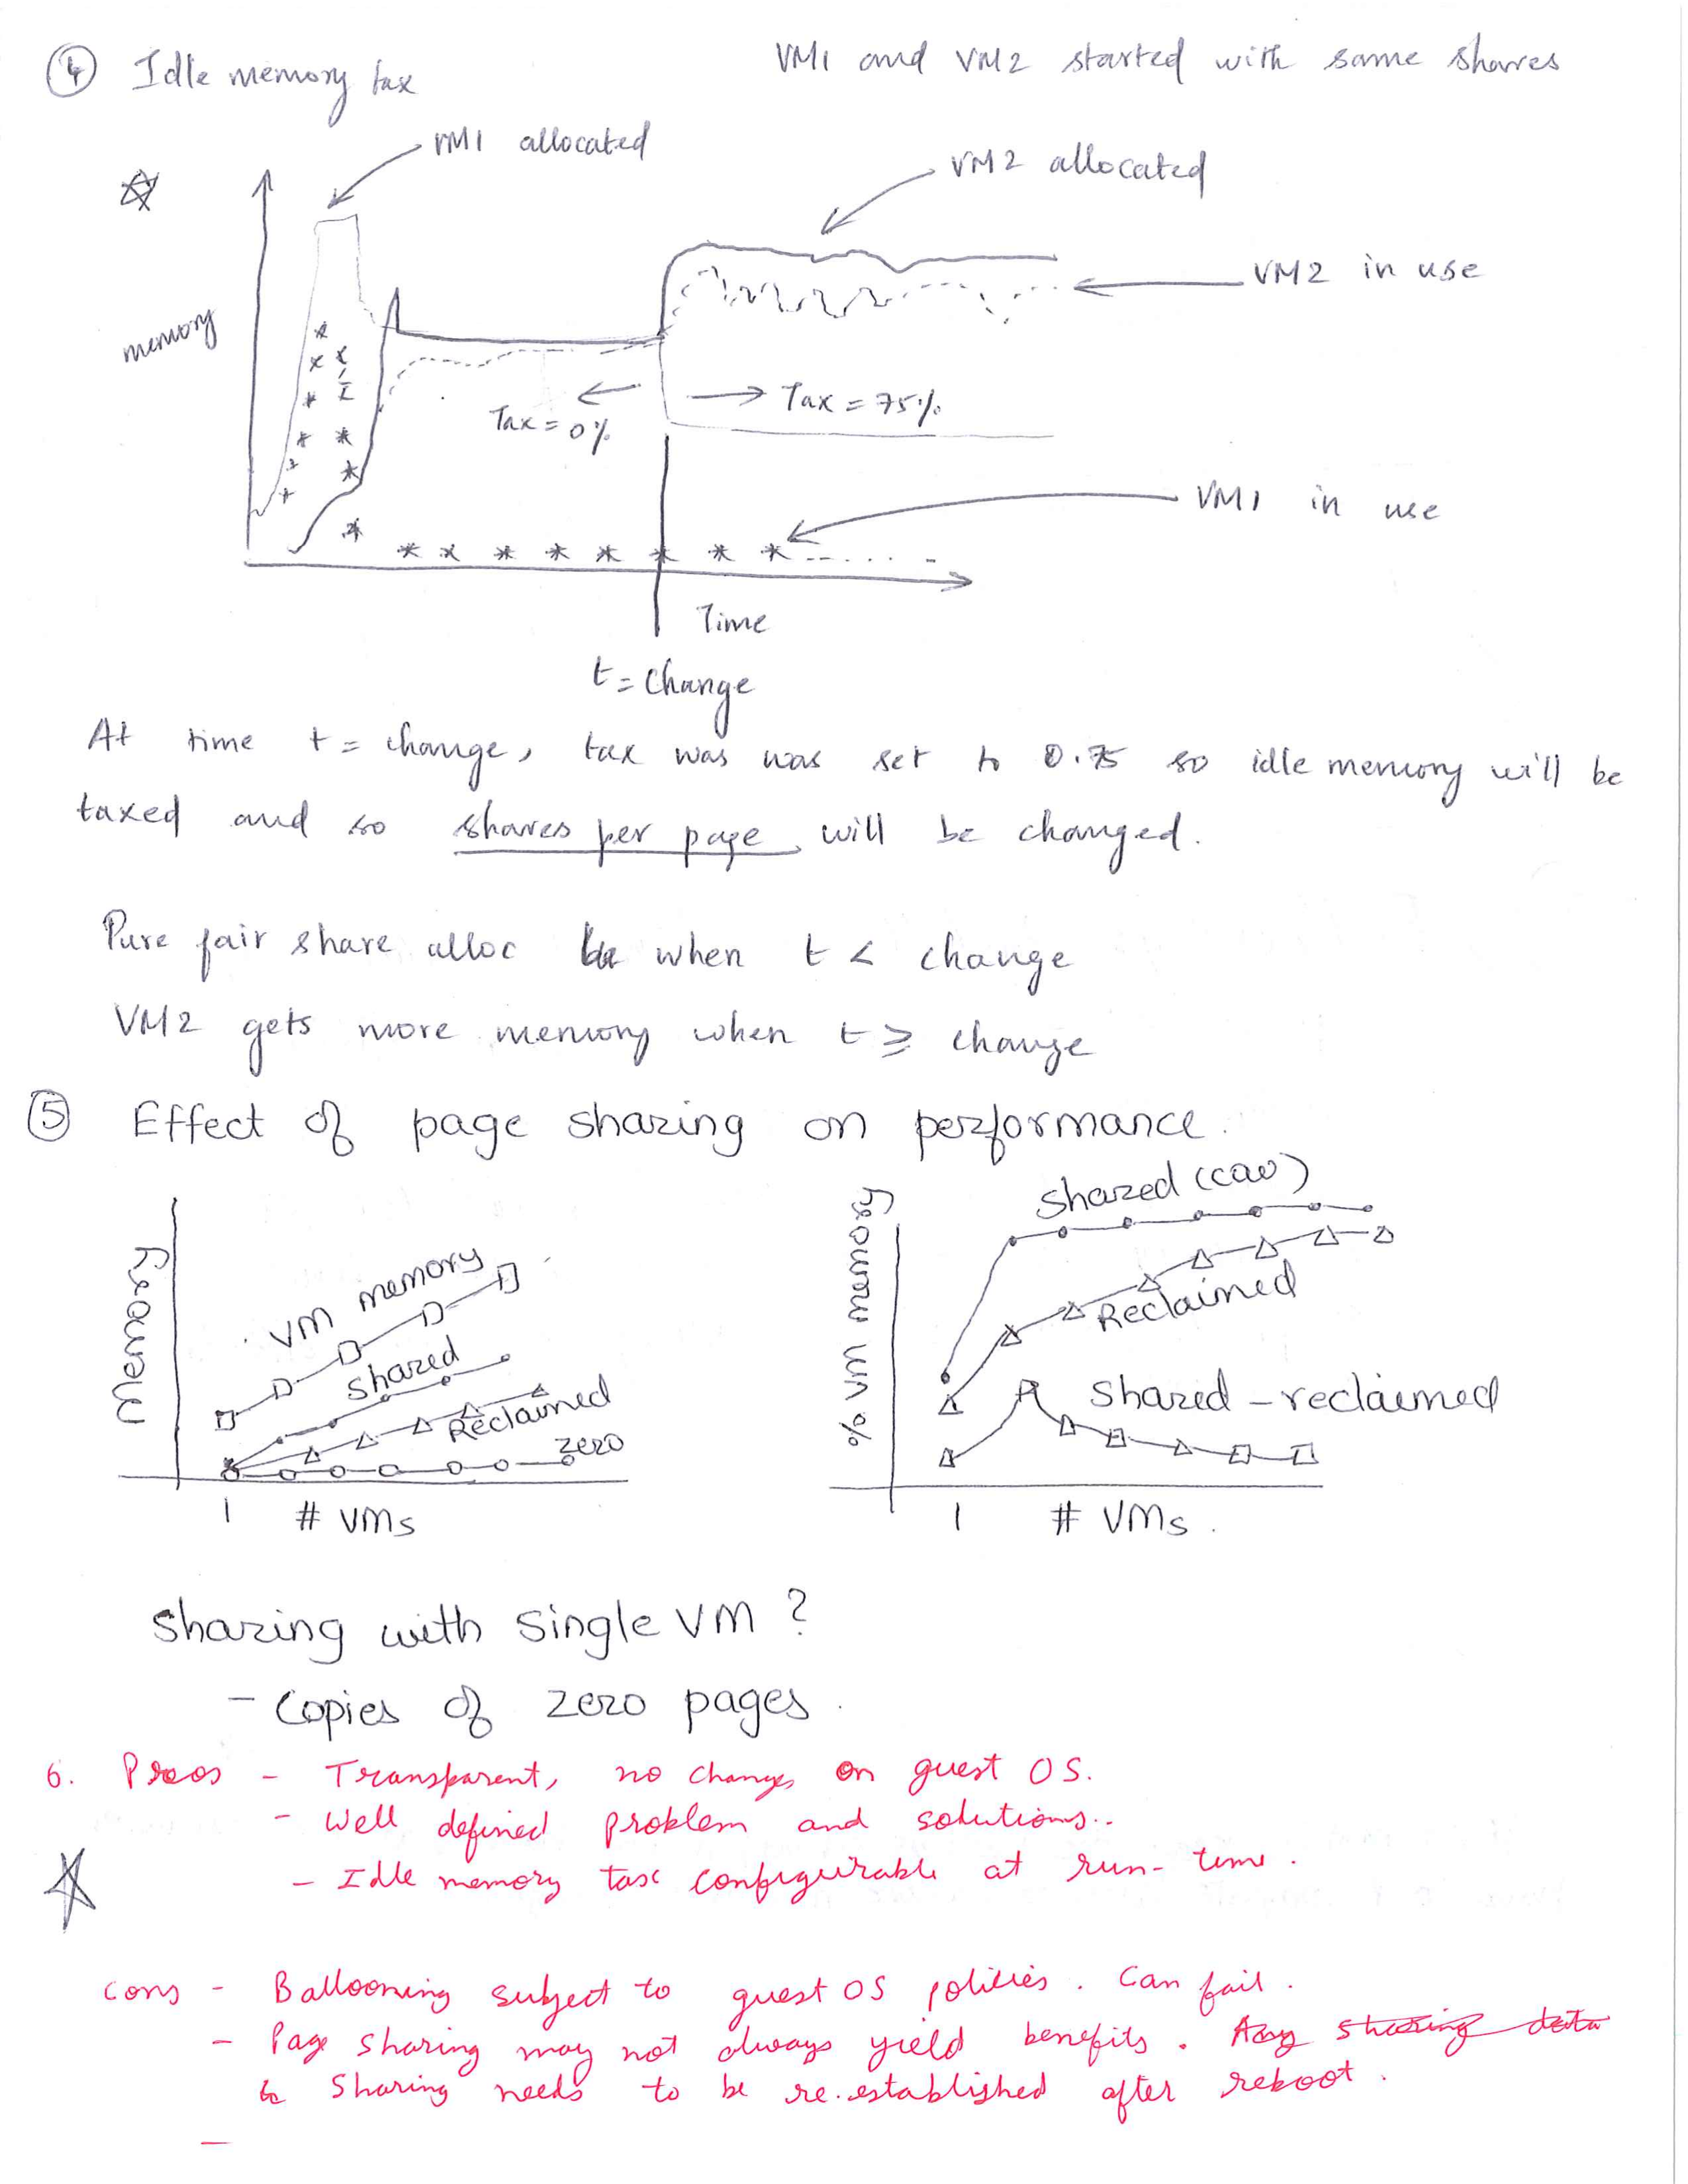 ④ Idle memory tax
VM1 and VM2 started with same shares
VM1 allocated
VM2 allocated
memory
VM2 in use
Tax = 0%
Tax = 75%
VM1 in use
Time
t = change
At time t = change, tax was was set to 0.75 so idle memory will be
taxed and so shares per page will be changed.
Pure fair share alloc when t < change
VM2 gets more memory when t ≥ change
⑤ Effect of page sharing on performance.
Memory
VM memory
Shared
Reclaimed
zero
1 # VMs
% VM memory
Shared (COW)
Reclaimed
Shared - reclaimed
1 # VMs.
Sharing with single VM?
- Copies of zero pages.
6. Pros - Transparent, no changes on guest OS.
- Well defined problem and solutions..
- Idle memory tax configurable at run-time.
Cons - Ballooning subject to guest OS policies. Can fail.
- Page sharing may not always yield benefits. Any sharing data
Sharing needs to be re-established after reboot.
-